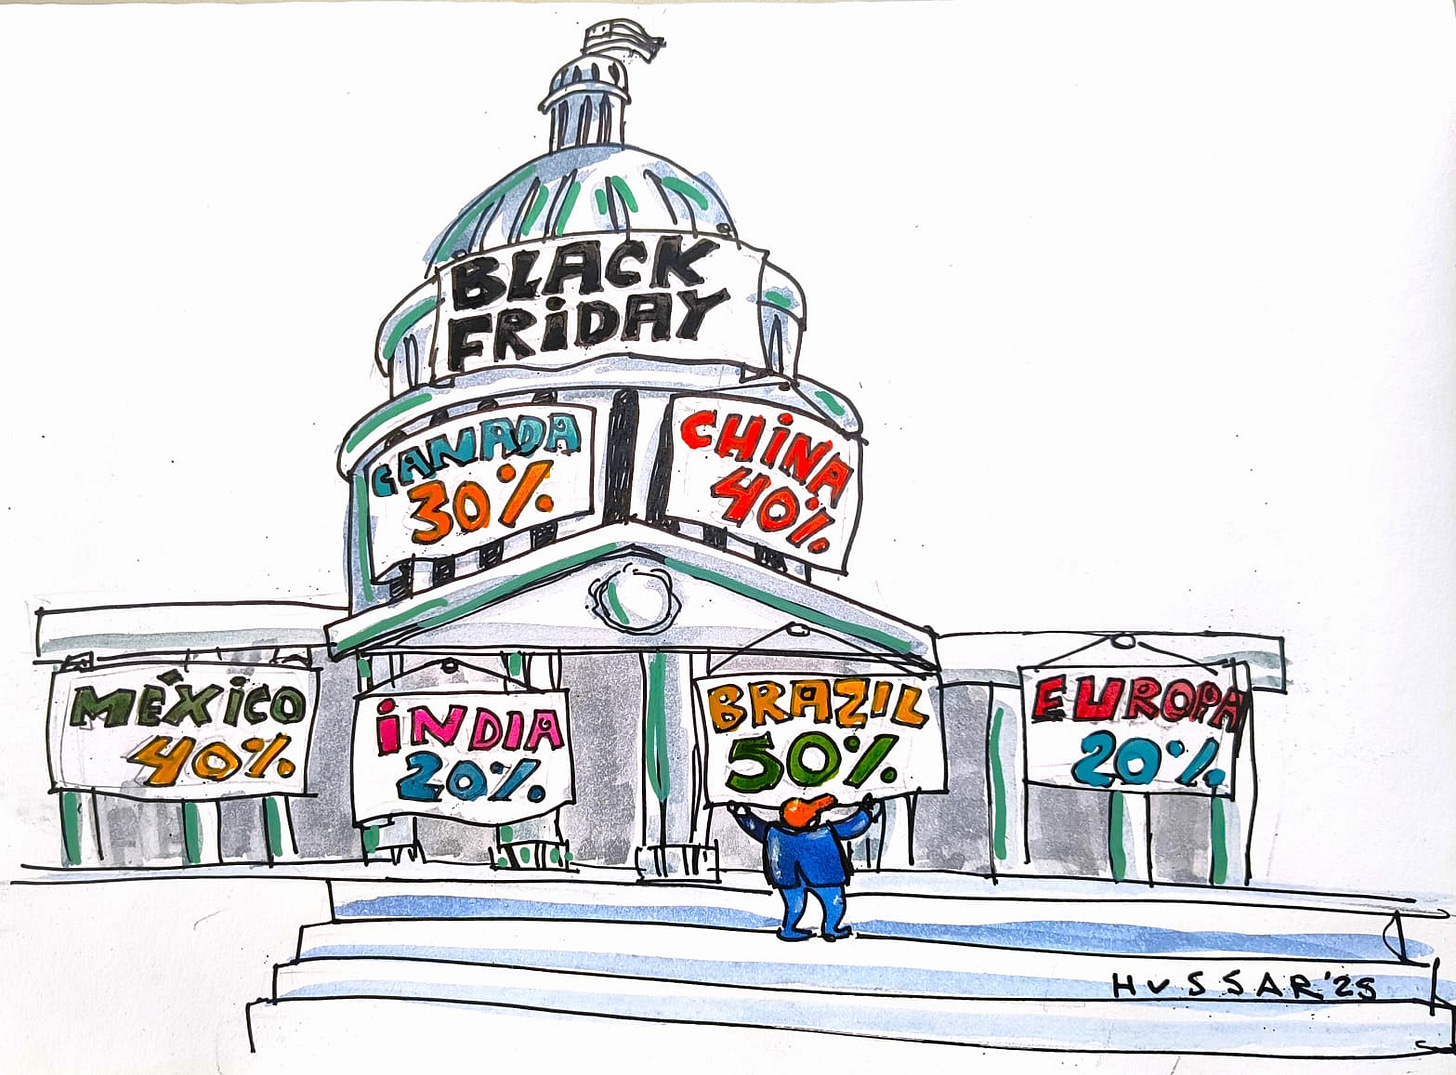 BLACK
FRiDAY
CANADA
30%
CHiNA
40%
MÉXiCO
40%
iNDIA
20%
BRAZIL
50%
EUROPA
20%
HUSSAR'25